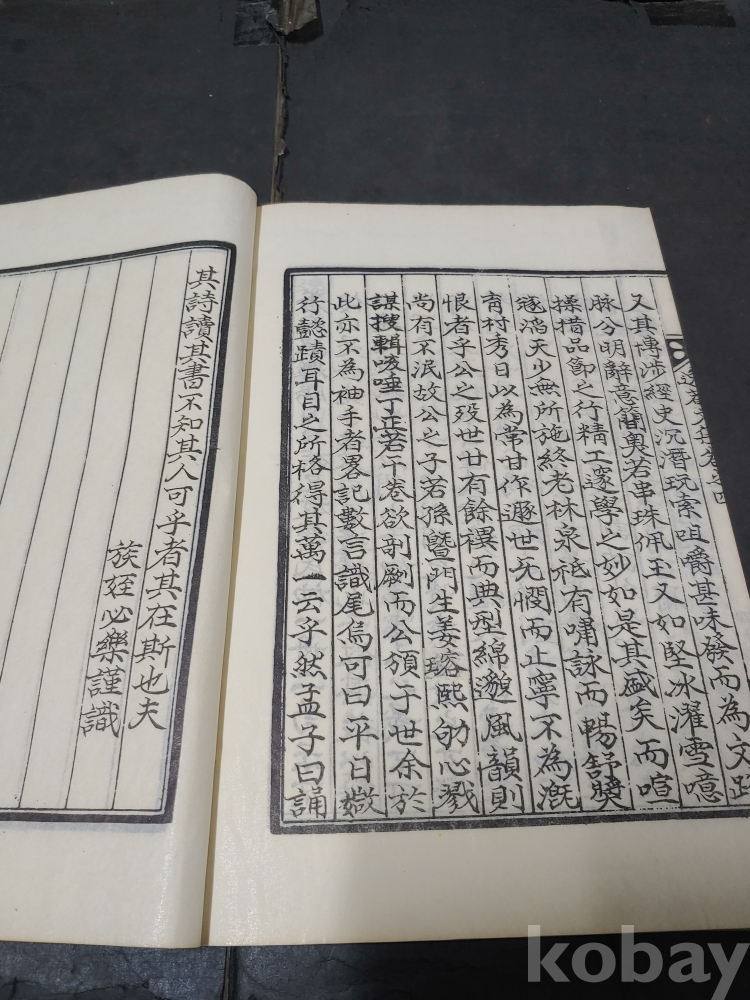 又其博涉經史沉潛玩索咀嚼甚味發而為文跡
脉分明辭意簡奧若串珠佩玉又如堅冰濯雪噫
操楷品節之行精工邃學之妙如是其盛矣而喧
逐滔天少無所施終老林泉秪有嘯詠而暢舒獎
育村秀日以為常甘作遯世旡憫而止寧不為漑
恨者乎公之歿世廿有餘禩而典型綿邈風韻則
尚有不泯故公之子若孫曁門生姜瑢熙劬心戮
謀搜輯咳唾丁正若干卷欲剞劂而公頒于世余於
此亦不為袖手者畧記數言識尾烏可曰平日媺
行懿蹟耳目之所袼得其萬一云乎然孟子曰誦
其詩讀其書不知其人可乎者其在斯也夫
族姪必樂謹識
kobay